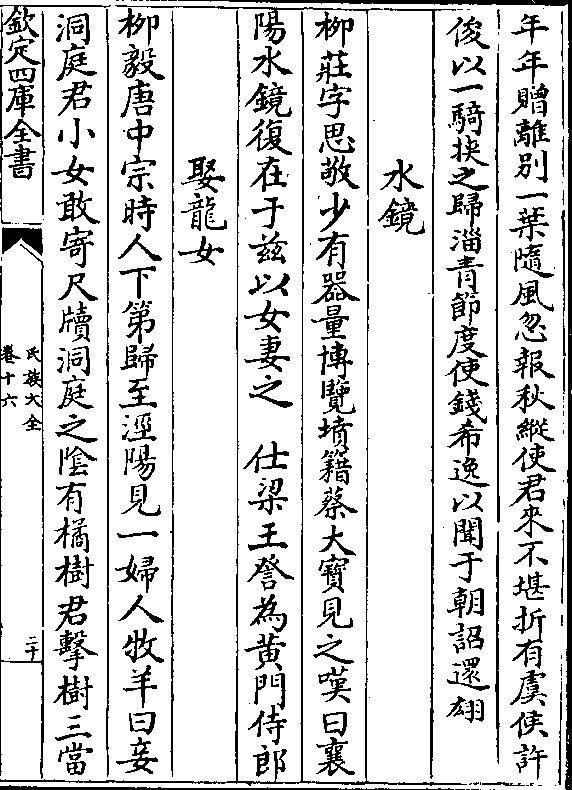 年年贈離別一葉隨風忽報秋縱使君來不堪折有虞侯許
俊以一騎挟之歸淄青節度使錢希逸以聞于朝詔還翃
水鏡
柳莊字思敬少有器量博覽墳籍蔡大寶見之嘆曰襄
陽水鏡復在于兹以女妻之　仕梁王詧為黄門侍郎
娶龍女
柳毅唐中宗時人下第歸至涇陽見一婦人牧羊曰妾
洞庭君小女敢寄尺牘洞庭之隂有橘樹君擊樹三當
欽定四庫全書
氏族大全
卷十六
二十